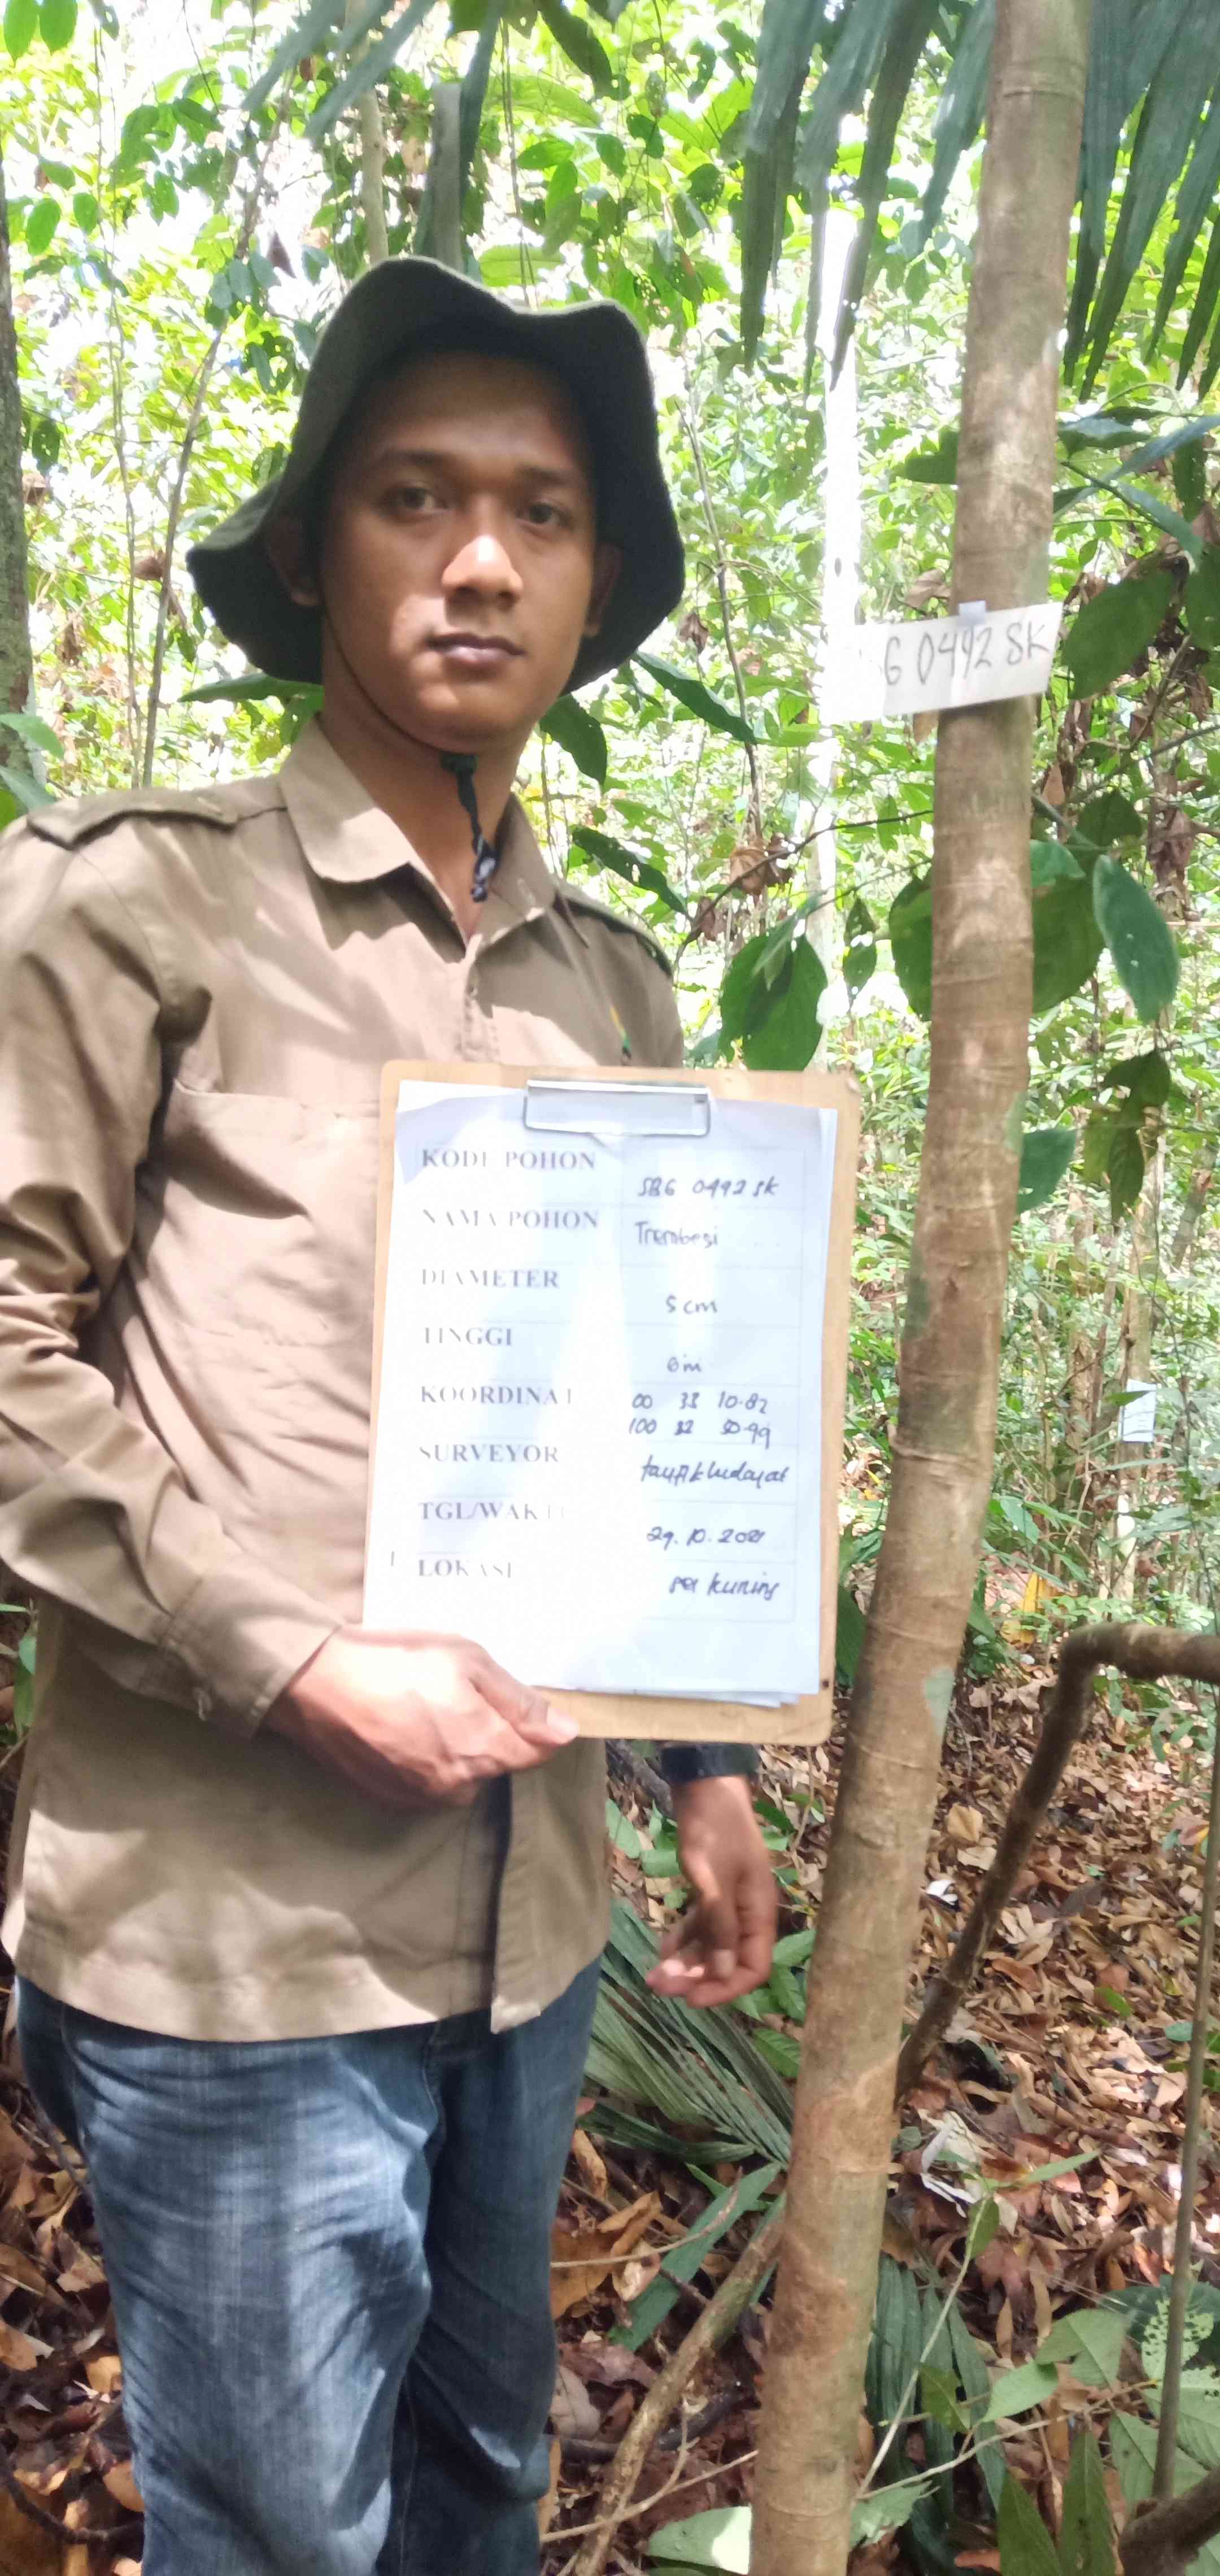 G 0492 SK
KODE POHON
SBG 0492 SK
NAMA POHON
Trembesi
DIAMETER
5 cm
TINGGI
6 m
KOORDINAT
00 33 10.82
100 32 50.99
SURVEYOR
taufik hidayat
TGL/WAKTU
29.10.2021
LOKASI
sei kuning